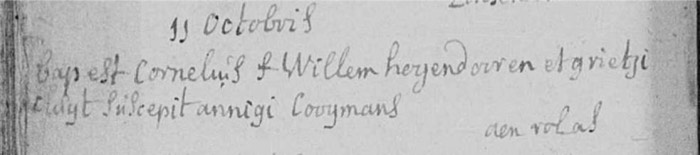 11 Octobris
bap est Cornelius f Willem heyendoren et grietji
Cuyt suscepit annigi Cooymans
aen rolas